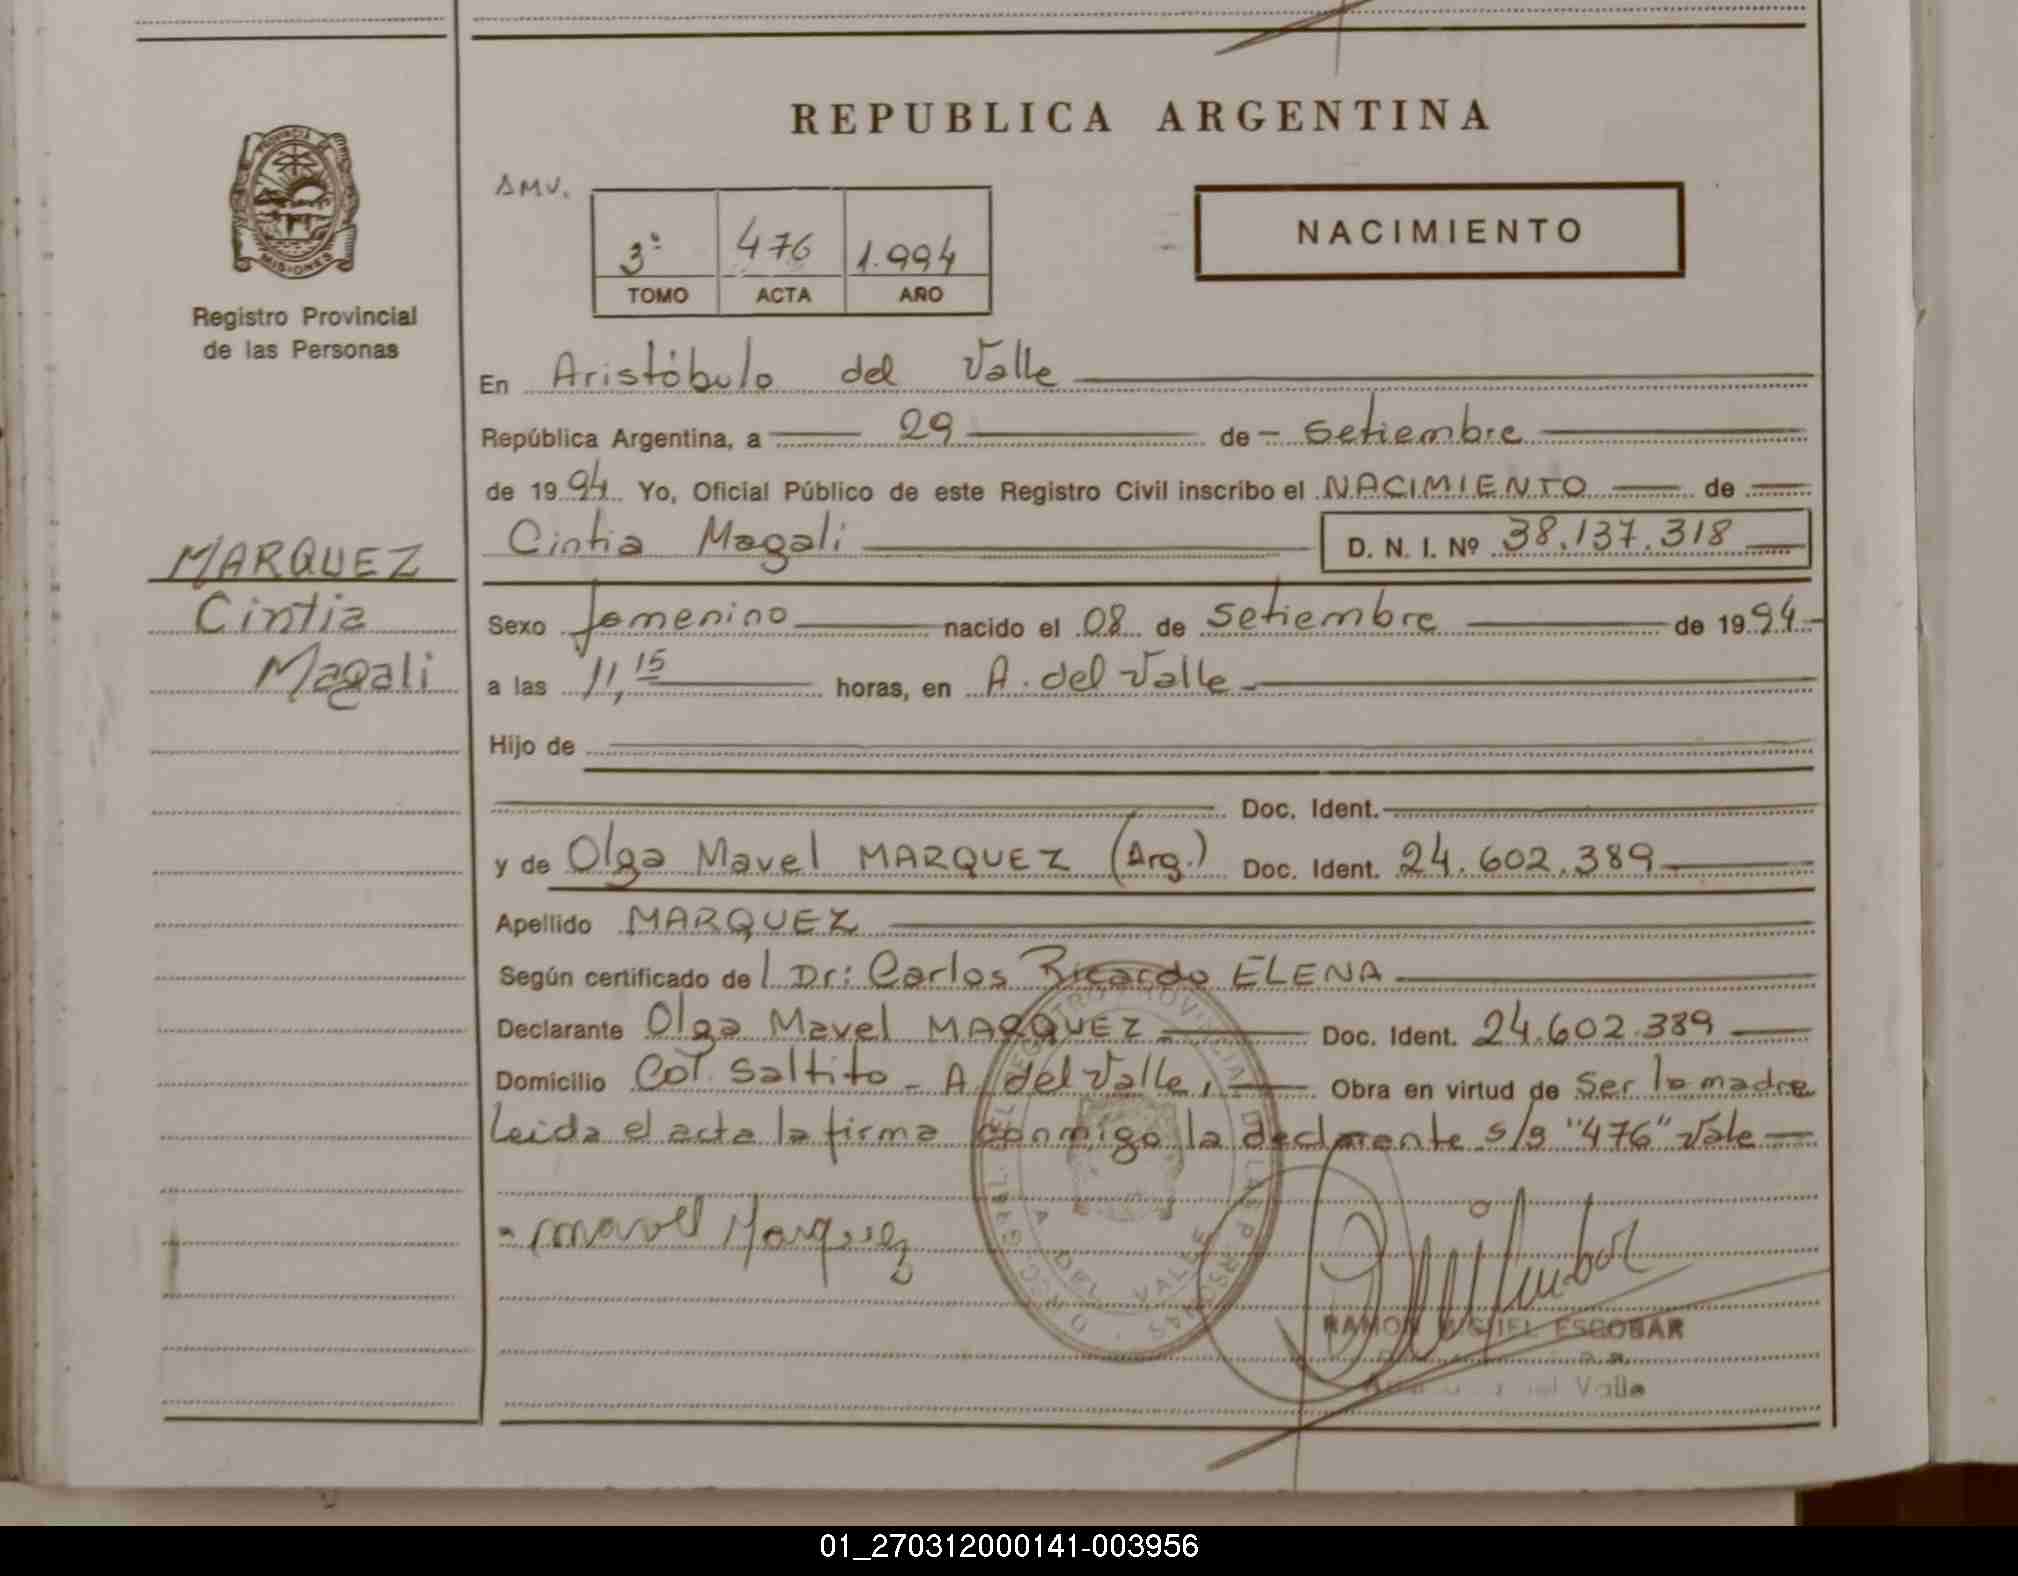 REPUBLICA ARGENTINA
PROVINCIA DE
MISIONES
Registro Provincial
de las Personas
AMV.
3º 476 1.994
TOMO ACTA AÑO
NACIMIENTO
En Aristóbulo del Valle
República Argentina, a 29 de setiembre
de 1994 Yo, Oficial Público de este Registro Civil inscribo el NACIMIENTO de
Cintia Magali D. N. I. Nº 38.137.318
MARQUEZ
Cintia
Magali
Sexo femenino nacido el 08 de setiembre de 1994
a las 11,15 horas, en A. del Valle
Hijo de
Doc. Ident.
y de Olga Mavel MARQUEZ (Arg.) Doc. Ident. 24.602.389
Apellido MARQUEZ
Según certificado de Dr: Carlos Ricardo ELENA
Declarante Olga Mavel MARQUEZ Doc. Ident. 24.602.389
Domicilio Col. Saltito - A. del Valle, Obra en virtud de ser la madre
Leida el acta la firma conmigo la declarante s/g "476" Vale
Mavel Marquez
REGISTRO PROVINCIAL DE LAS PERSONAS
A. DEL VALLE
RAMON MIGUEL ESCOBAR
Valle
01_270312000141-003956